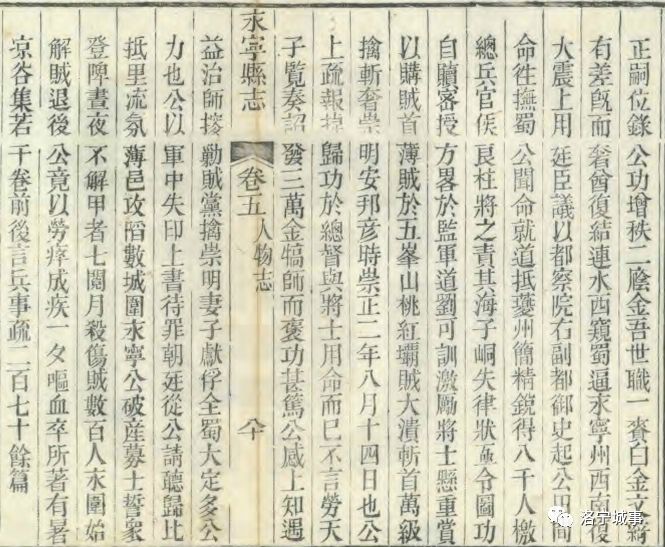 正嗣位錄公功增秩二廕金吾世職一賚白金文綺
有差旣而奢酋復結連水西窺蜀逼永寧州西南復
大震上用廷臣議以都察院右副都御史起公田間
命徃撫蜀公聞命就道抵夔州簡精銳得八千人檄
總兵官侯良柱將之責其海子峒失律狀亟令圖功
自贖密授方畧於監軍道劉可訓激勵將士懸重賞
以購賊首薄賊於五峯山桃紅壩賊大潰斬首萬級
擒斬奢崇明安邦彥時崇正二年八月十四日也公
上疏報捷歸功於總督與將士用命而已不言勞天
子覽奏詔發三萬金犒師而褒功甚篤公感上知遇
永寧縣志 卷五 人物志
益治師搜勦賊黨擒崇明妻子獻俘全蜀大定多公
力也公以軍中失印上書待罪朝廷從公請聽歸比
抵里流氛薄邑攻䧟數城圍永寧公破產募士誓眾
登陴晝夜不解甲者七閱月殺傷賊數百人永圍始
解賊退後公竟以勞瘁成疾一夕嘔血卒所著有暑
京咨集若干卷前後言兵事疏二百七十餘篇
洛宁城事